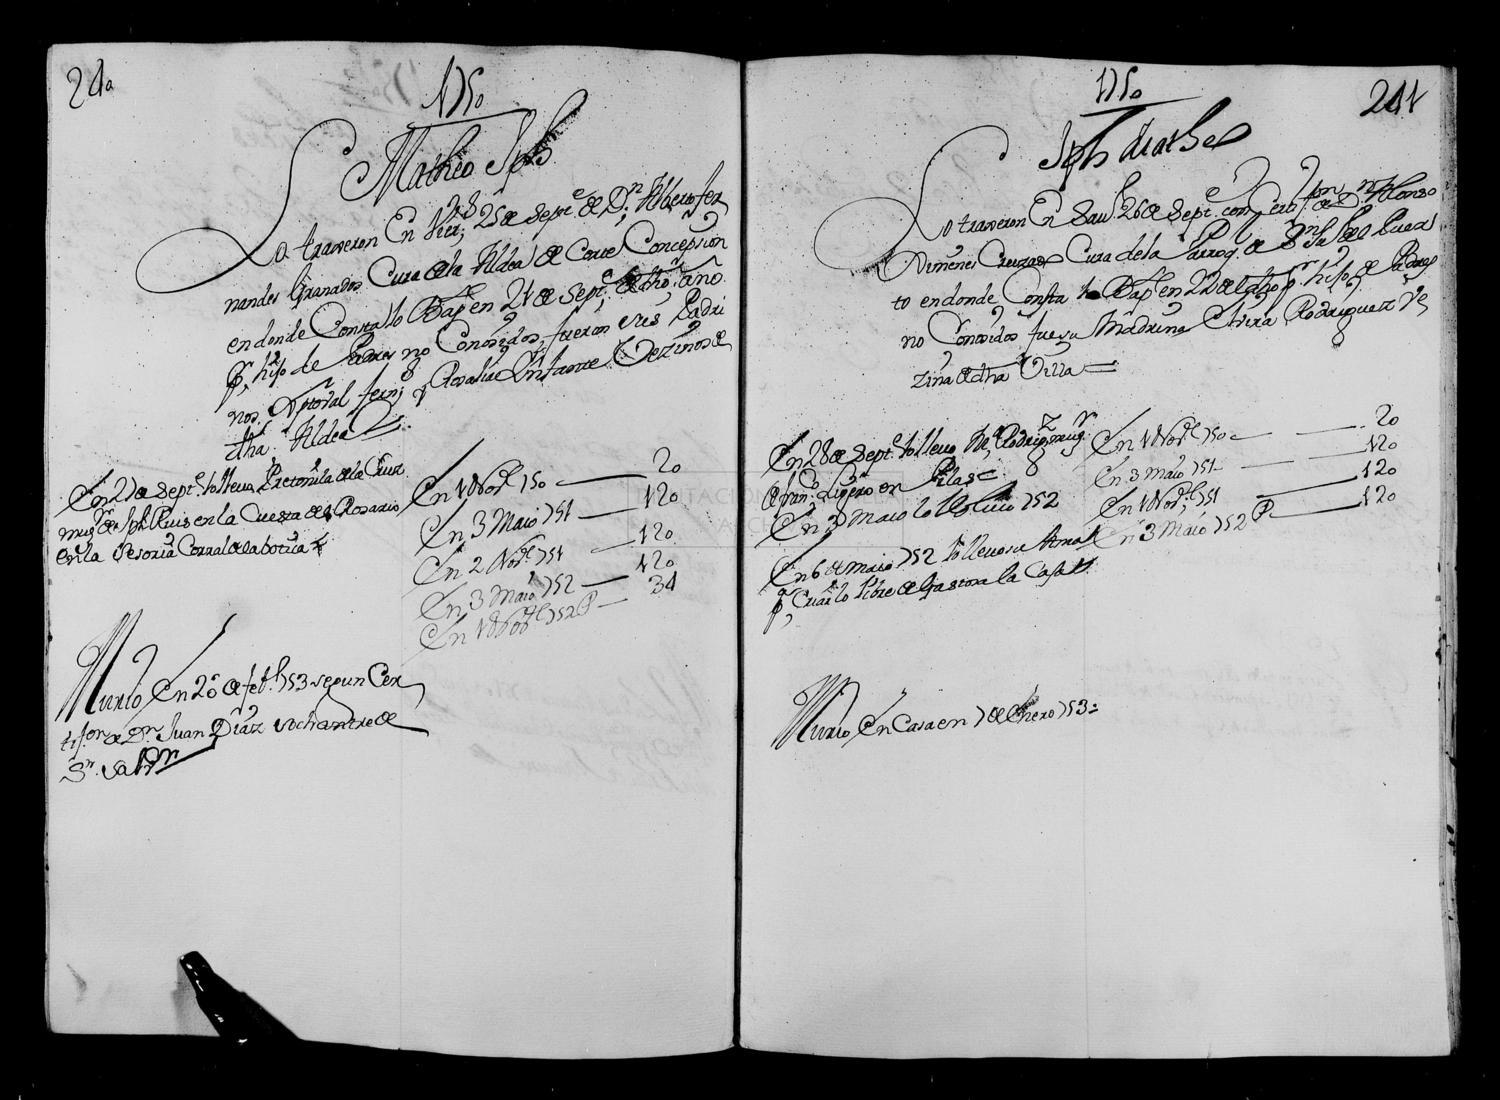 240
1750
Matheo Jph
Lo trageron En Vier; 25 de Septe de Dn Alberto fer
nandes Granados Cura de la Aldea de Corte Concepsion
en donde Consta lo Bapn en 21 de Septe de dho año
pr hijo de Padres no Conosidos, fueron sus Padri
nos. Xptoval fern; y Rosalia Infante Vezinos de
dha Aldea
En 27 de Septe lo llevo Petronila de la Cruz
mugr de Jph Ruis en la Cuesta del Rosario
en la Corral de la botica
En 1 Nove 750 20
En 3 Maio 751 120
En 2 Nove 751 120
En 3 Maio 752 120
En 1 752 P 34
Murio En 20 de feb. 753 segun Cer
tifon de Dn Juan Diaz sochantre de
Sn Salvr
241
1750
Jph Matheo
Lo trageron En Sav 26 de Septe con de Dn Alonso
Ximenes Cruzado Cura de la Parroq. de Puerto
to en donde Consta lo Bapn en 22 de dho pr hijo de Padres
no Conosidos fue su Madrina Elvira Rodriguez Ve
zina de dha Villa
En 28 de Septe lo llevo Rodrigz mugr
de franco Ligero en Pilas
En 3 Maio lo 752
En 6 de Maio 752 lo llevo su Ama
pr Criarlo libre de Gastos a la Casa
En 1 Nove 750 20
En 3 Maio 751 120
En 1 Nove 751 120
En 3 Maio 752 P 120
Murio En Casa en 7 de Enero 753